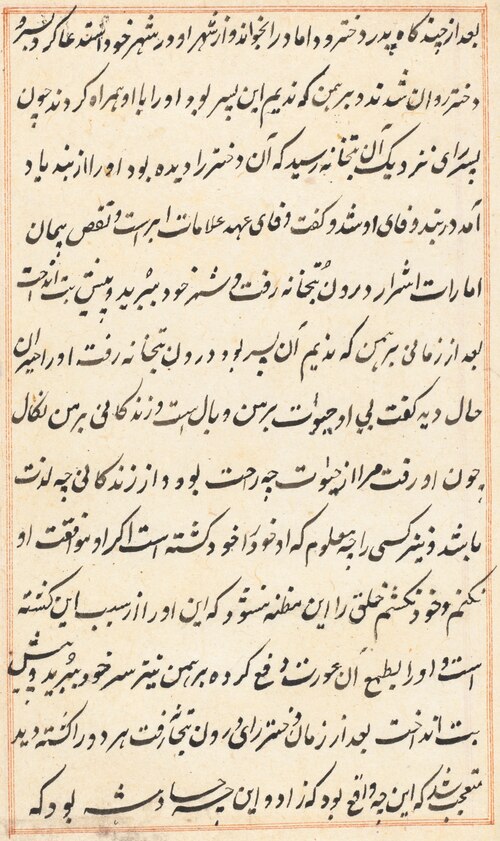 بعد از چند گاه پدر دختر و داماد را بخواند و از شهر او در شهر خود استدعا کرد پسر و
دختر روان شدند و برهمن که ندیم این پسر بود او را با او همراه کردند چون
پسر رای نزدیک آن بتخانه رسید که آن دختر را دیده بود او را از بند یاد
آمد در بند وفای او شد و گفت وفای عهد علامات ابرار است و نقص پیمان
امارات اشرار درون بتخانه رفت و سر خود ببرید و پیش بت انداخت
بعد از زمانی برهمن که ندیم آن پسر بود درون بتخانه رفت او را حیران
حال دید گفت بی او حیوات برمن وبال است و زندگانی برمن نکال
چون او رفت مرا از حیوات چه راحت بود و از زندگانی چه لذت
باشد و نیز کسی را چه معلوم که او خود را خود کشته است اگر او موافقت او
نکنم و خود نکشم خلق را این مظنه شود که این او را از سبب این کشته
است و او را بطمع آن عورت دفع کرده برهمن نیز سر خود ببرید و پیش
بت انداخت بعد از زمان دختر رای درون بتخانه رفت هر دو را کشته دید
متعجب شد که این چه واقع بود که زاد و این چه حادثه بود که